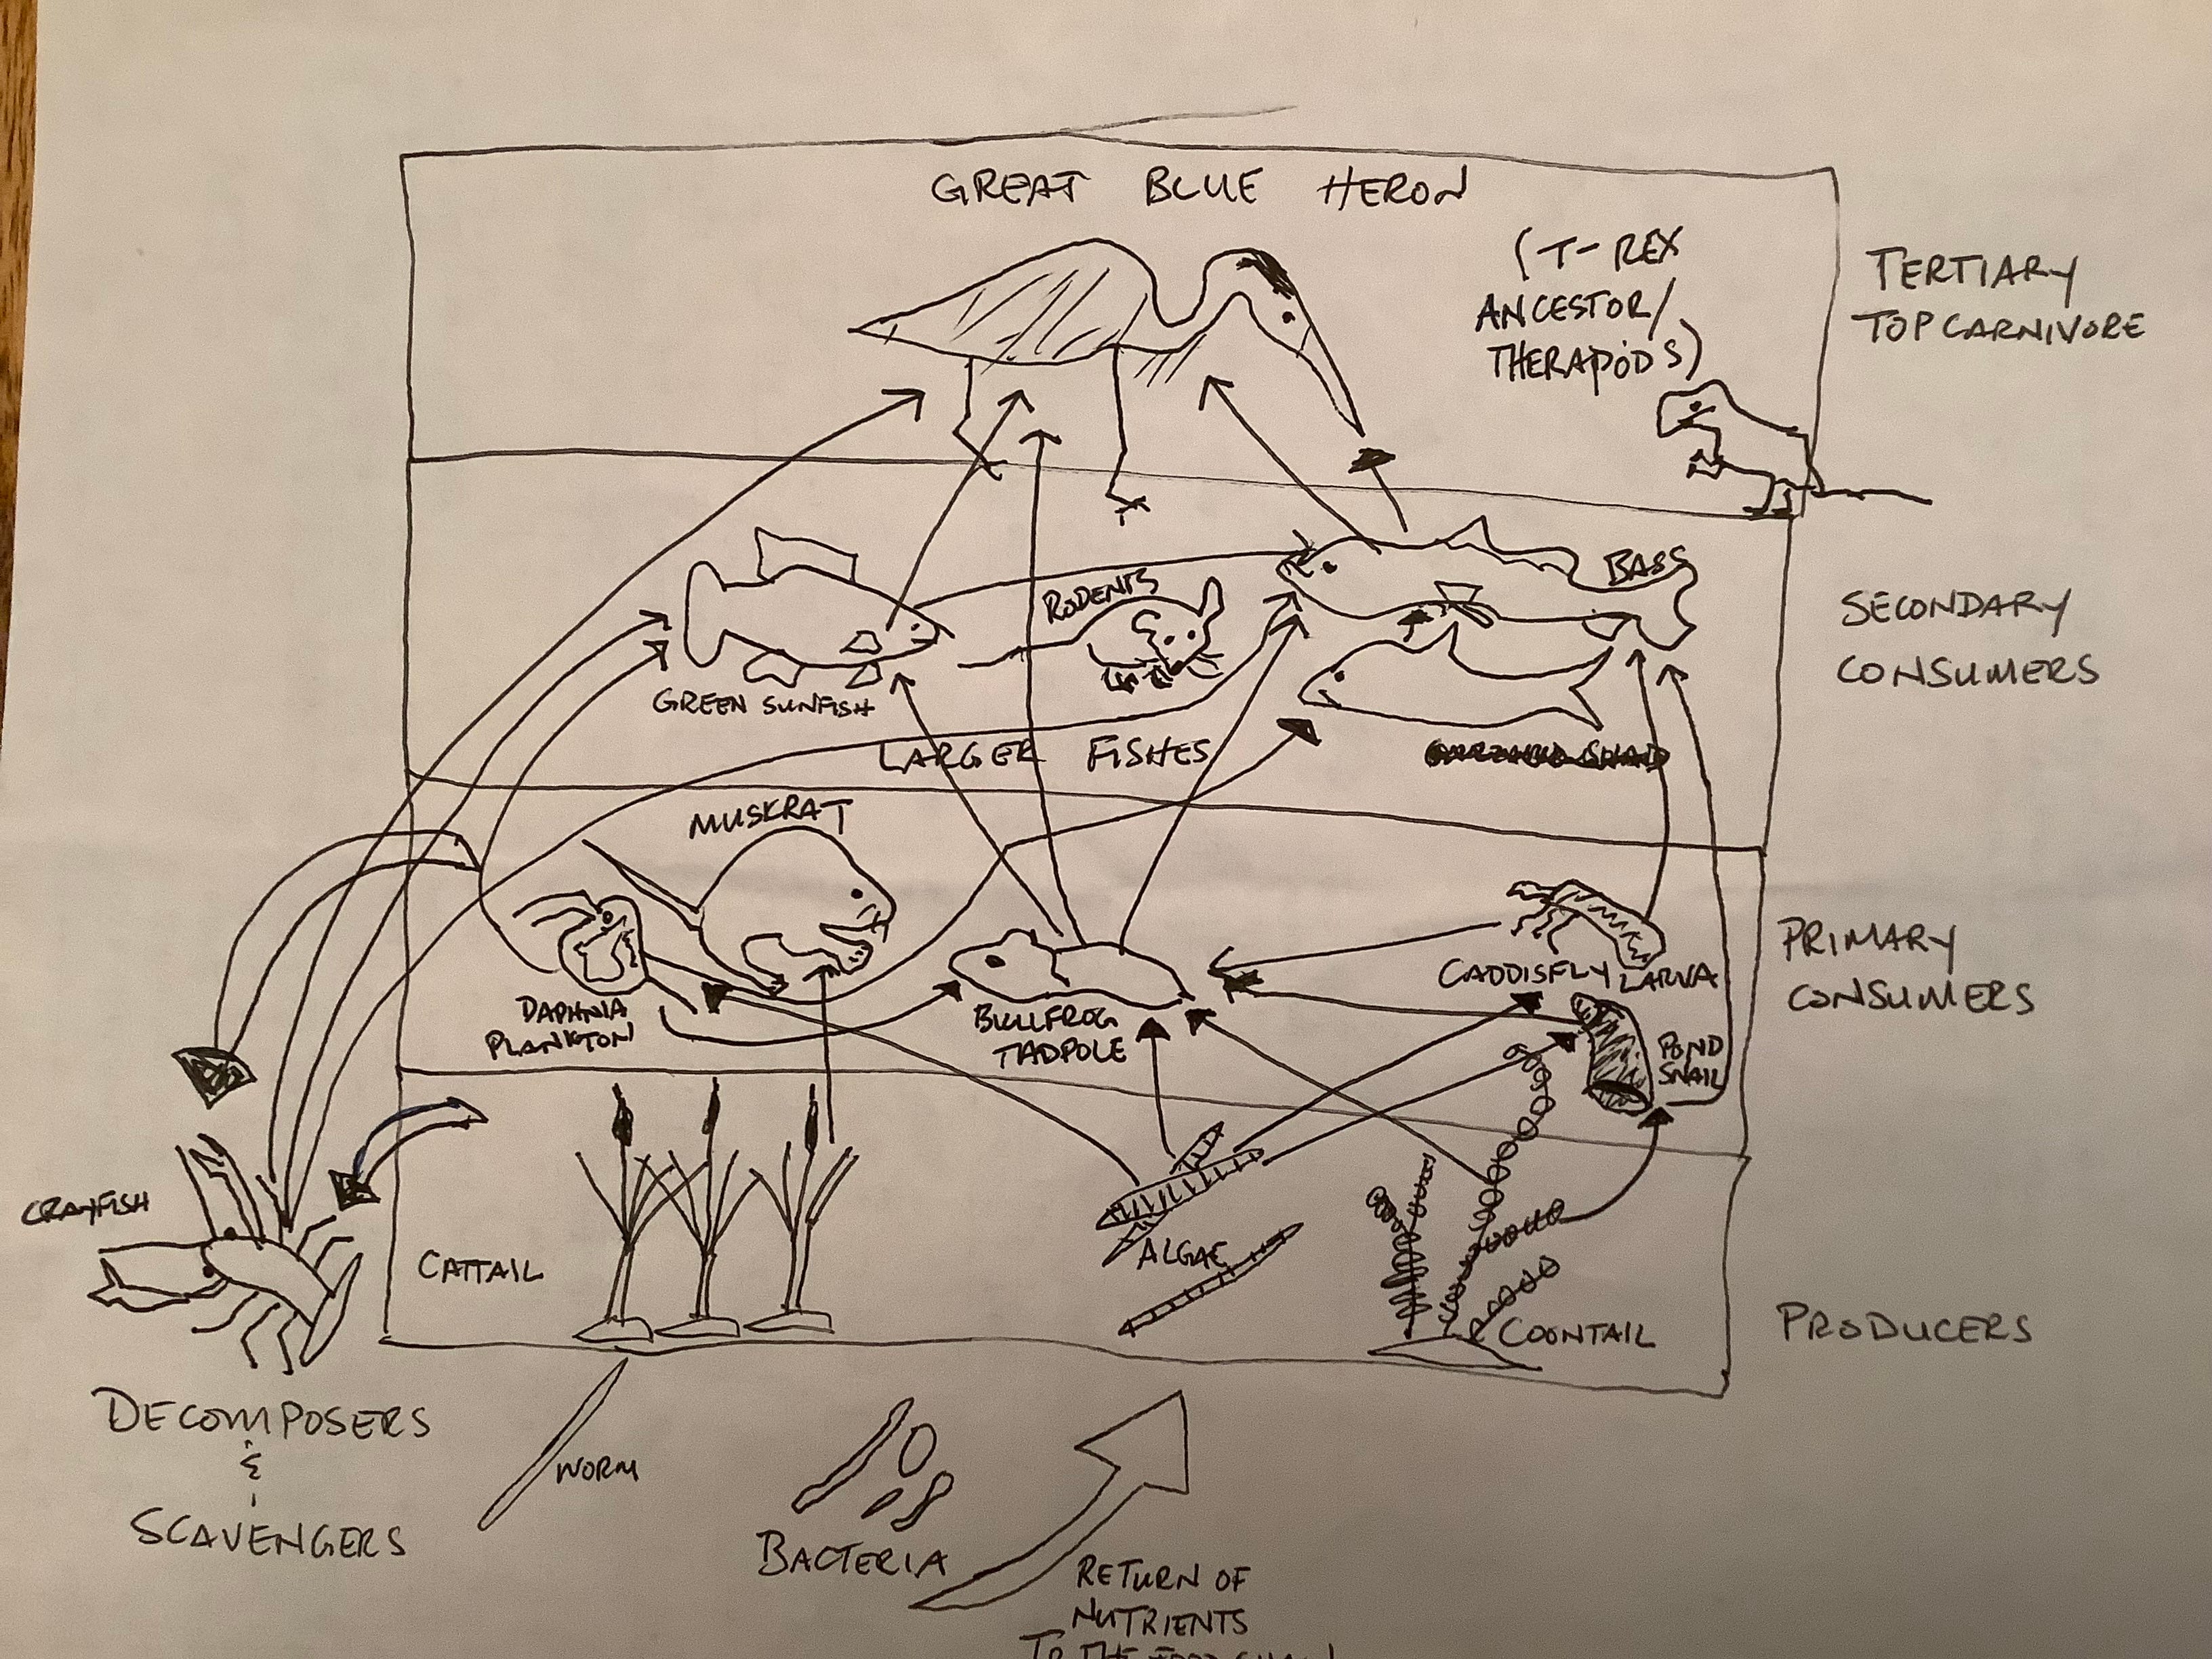 GREAT BLUE HERON
(T-REX
ANCESTOR/
THERAPODS)
TERTIARY
TOP CARNIVORE
BASS
RODENTS
GREEN SUNFISH
SECONDARY
CONSUMERS
LARGER FISHES
MUSKRAT
DAPHNIA
PLANKTON
BULLFROG
TADPOLE
CADDISFLY LARVA
POND
SNAIL
PRIMARY
CONSUMERS
CRAYFISH
CATTAIL
ALGAE
COONTAIL
PRODUCERS
DECOMPOSERS
&
SCAVENGERS
WORM
BACTERIA
RETURN OF
NUTRIENTS
TO THE FOOD CHAIN